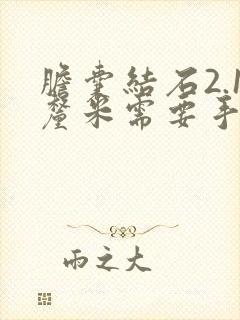 膽囊結石2.1
釐米需要手
雨之大